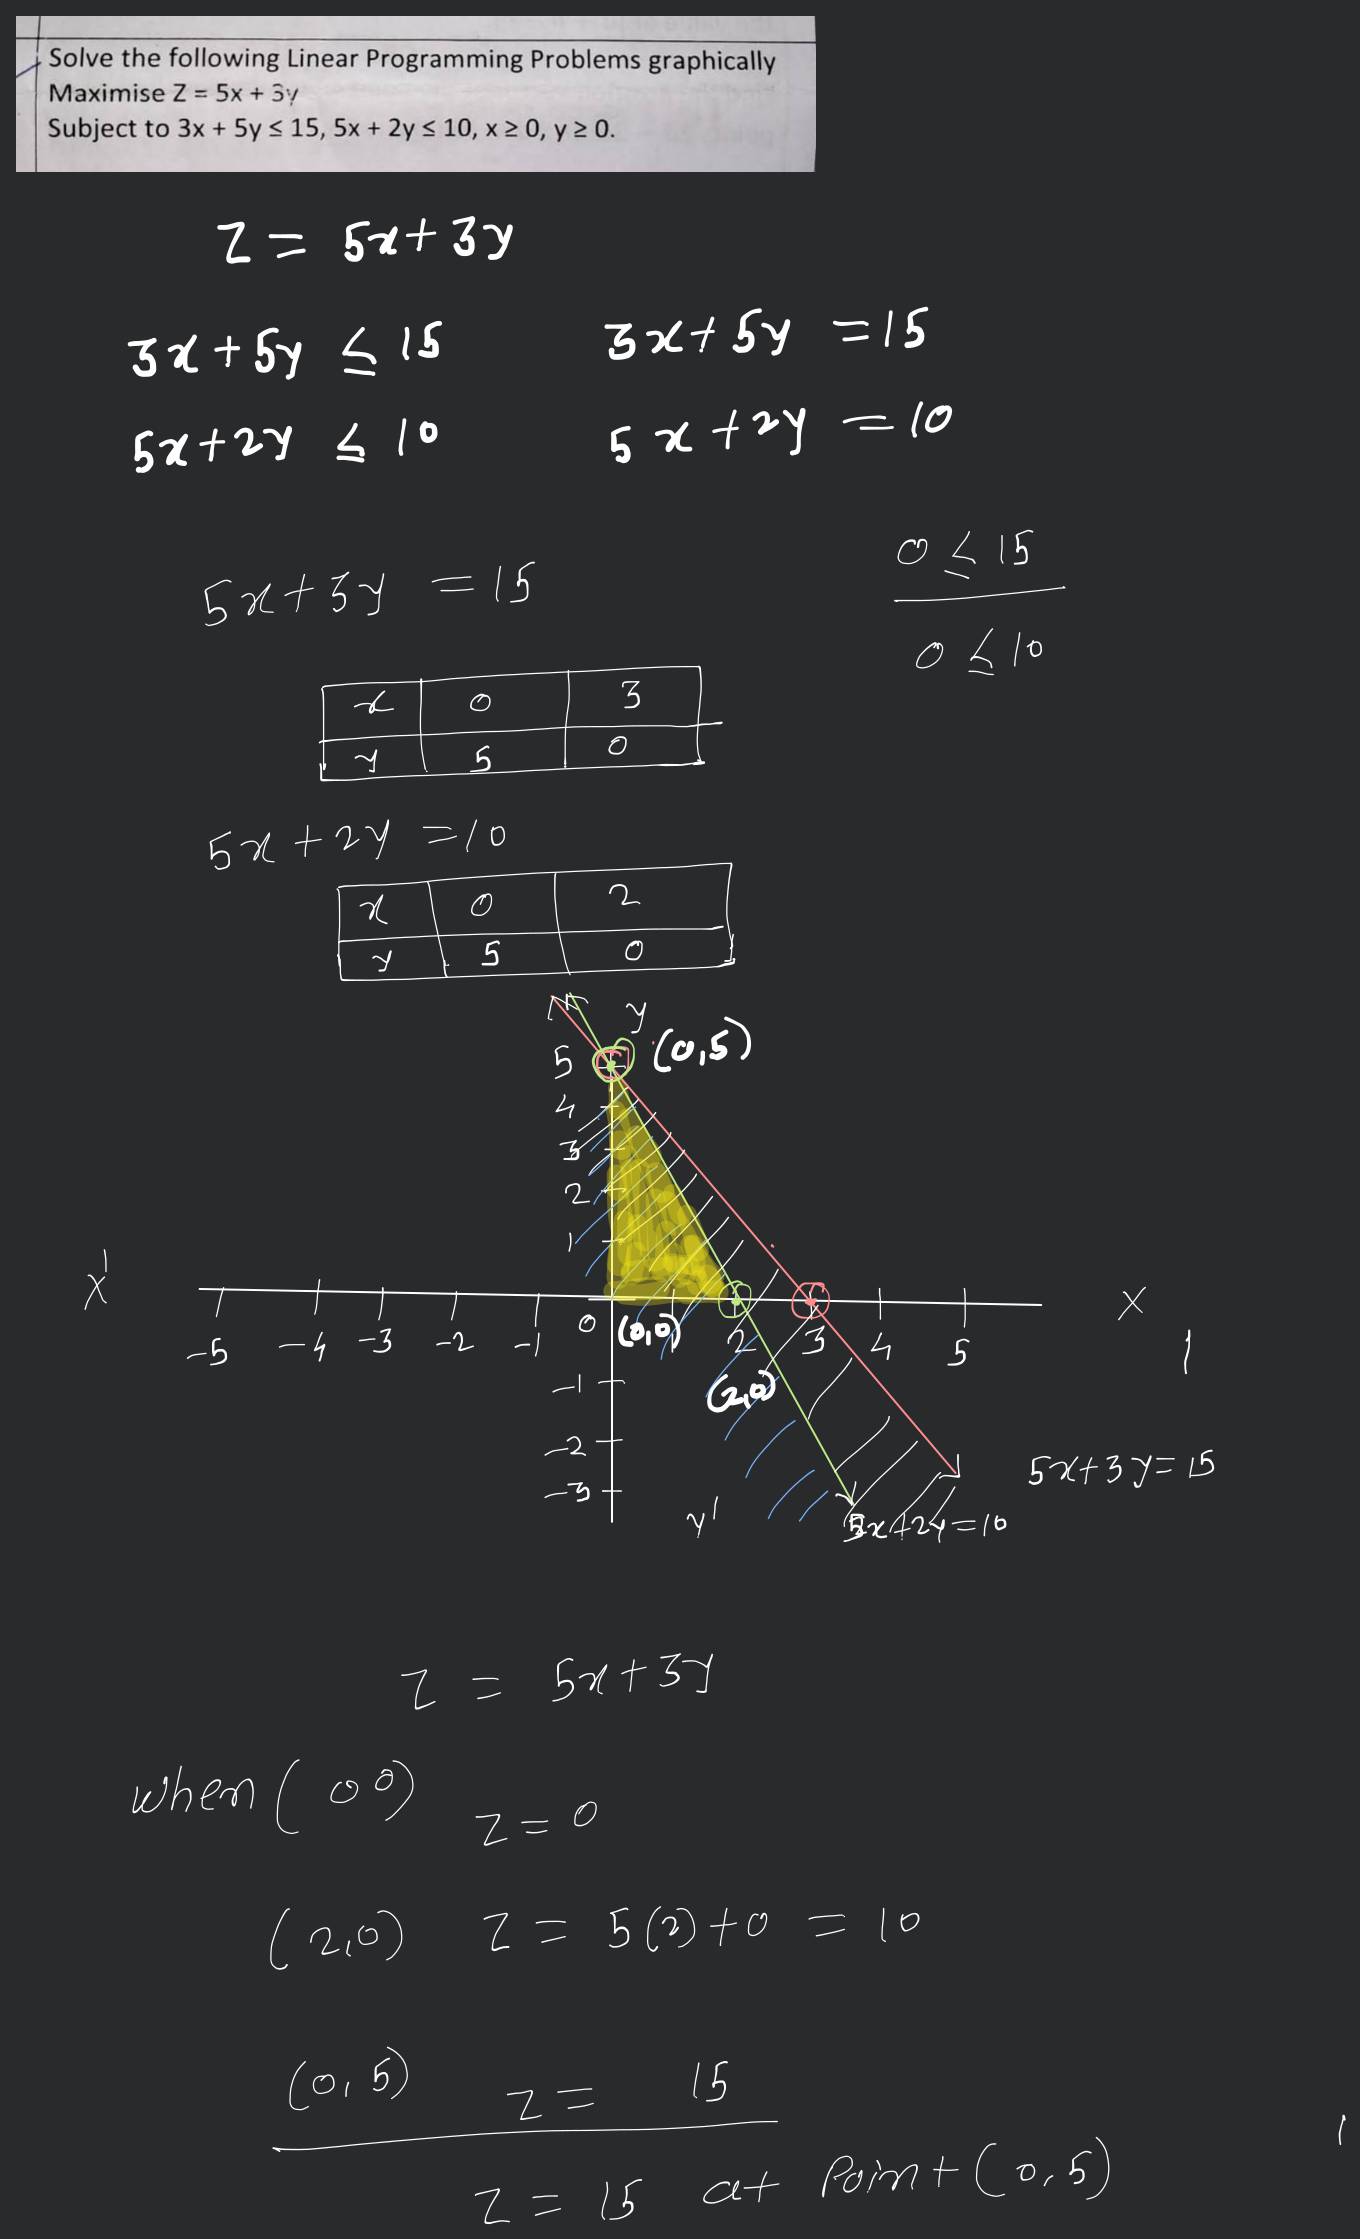 Solve the following Linear Programming Problems graphically
Maximise Z = 5x + 3y
Subject to 3x + 5y ≤ 15, 5x + 2y ≤ 10, x ≥ 0, y ≥ 0.
Z = 5x + 3y
3x + 5y ≤ 15 3x + 5y = 15
5x + 2y ≤ 10 5x + 2y = 10
0 ≤ 15
5x + 3y = 15
0 ≤ 10
x 0 3
y 5 0
5x + 2y = 10
x 0 2
y 5 0
y
5 (0,5)
4
3
2
1
X' X
0 (0,0)
-5 -4 -3 -2 -1 2 3 4 5
-1 (2,0)
-2
-3
5x + 3y = 15
y' 5x + 2y = 10
Z = 5x + 3y
when (0 0)
Z = 0
(2,0) Z = 5(2) + 0 = 10
(0,5) Z = 15
Z = 15 at Point (0,5)